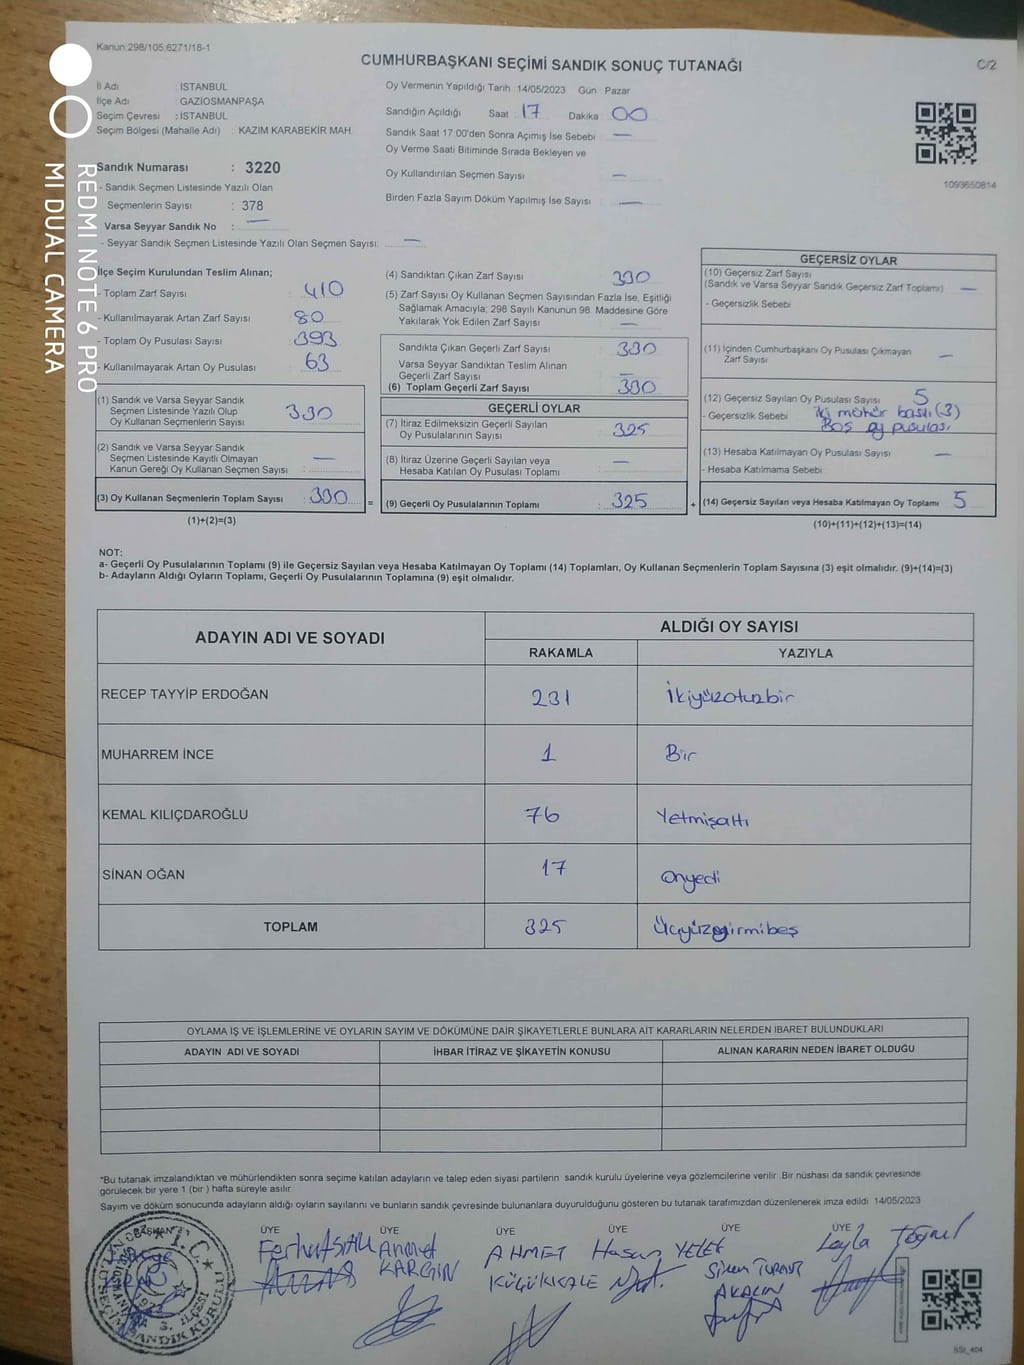 Kanun:298/105;6271/18-1
CUMHURBAŞKANI SEÇİMİ SANDIK SONUÇ TUTANAĞI
C/2
İl Adı : İSTANBUL
İlçe Adı : GAZİOSMANPAŞA
Seçim Çevresi : İSTANBUL
Seçim Bölgesi (Mahalle Adı) : KAZIM KARABEKİR MAH
Sandık Numarası : 3220
- Sandık Seçmen Listesinde Yazılı Olan
Seçmenlerin Sayısı : 378
Varsa Seyyar Sandık No : —
- Seyyar Sandık Seçmen Listesinde Yazılı Olan Seçmen Sayısı: —
Oy Vermenin Yapıldığı Tarih 14/05/2023 Gün Pazar
Sandığın Açıldığı Saat 17 Dakika 00
Sandık Saat 17.00'den Sonra Açımış İse Sebebi —
Oy Verme Saati Bitiminde Sırada Bekleyen ve
Oy Kullandırılan Seçmen Sayısı —
Birden Fazla Sayım Döküm Yapılmış İse Sayısı —
1093650814
İlçe Seçim Kurulundan Teslim Alınan;
- Toplam Zarf Sayısı : 410
- Kullanılmayarak Artan Zarf Sayısı : 80
- Toplam Oy Pusulası Sayısı : 393
- Kullanılmayarak Artan Oy Pusulası : 63
(1) Sandık ve Varsa Seyyar Sandık
Seçmen Listesinde Yazılı Olup
Oy Kullanan Seçmenlerin Sayısı : 330
(2) Sandık ve Varsa Seyyar Sandık
Seçmen Listesinde Kayıtlı Olmayan
Kanun Gereği Oy Kullanan Seçmen Sayısı : —
(3) Oy Kullanan Seçmenlerin Toplam Sayısı : 330 =
(1)+(2)=(3)
(4) Sandıktan Çıkan Zarf Sayısı 330
(5) Zarf Sayısı Oy Kullanan Seçmen Sayısından Fazla İse, Eşitliği
Sağlamak Amacıyla; 298 Sayılı Kanunun 98. Maddesine Göre
Yakılarak Yok Edilen Zarf Sayısı : —
Sandıkta Çıkan Geçerli Zarf Sayısı : 330
Varsa Seyyar Sandıktan Teslim Alınan
Geçerli Zarf Sayısı : —
(6) Toplam Geçerli Zarf Sayısı : 330
GEÇERLİ OYLAR
(7) İtiraz Edilmeksizin Geçerli Sayılan
Oy Pusulalarının Sayısı : 325
(8) İtiraz Üzerine Geçerli Sayılan veya
Hesaba Katılan Oy Pusulası Toplamı : —
(9) Geçerli Oy Pusulalarının Toplamı : 325 +
GEÇERSİZ OYLAR
(10) Geçersiz Zarf Sayısı
(Sandık ve Varsa Seyyar Sandık Geçersiz Zarf Toplamı) —
- Geçersizlik Sebebi :
(11) İçinden Cumhurbaşkanı Oy Pusulası Çıkmayan
Zarf Sayısı : —
(12) Geçersiz Sayılan Oy Pusulası Sayısı : 5
- Geçersizlik Sebebi : iki mühür basılı (3)
Boş oy pusulası
(13) Hesaba Katılmayan Oy Pusulası Sayısı : —
- Hesaba Katılmama Sebebi :
(14) Geçersiz Sayılan veya Hesaba Katılmayan Oy Toplamı 5
(10)+(11)+(12)+(13)=(14)
NOT:
a- Geçerli Oy Pusulalarının Toplamı (9) ile Geçersiz Sayılan veya Hesaba Katılmayan Oy Toplamı (14) Toplamları, Oy Kullanan Seçmenlerin Toplam Sayısına (3) eşit olmalıdır. (9)+(14)=(3)
b- Adayların Aldığı Oyların Toplamı, Geçerli Oy Pusulalarının Toplamına (9) eşit olmalıdır.
ADAYIN ADI VE SOYADI
ALDIĞI OY SAYISI
RAKAMLA YAZIYLA
RECEP TAYYİP ERDOĞAN 231 İkiyüzotuzbir
MUHARREM İNCE 1 Bir
KEMAL KILIÇDAROĞLU 76 Yetmişaltı
SİNAN OĞAN 17 Onyedi
TOPLAM 325 Üçyüzyirmibeş
OYLAMA İŞ VE İŞLEMLERİNE VE OYLARIN SAYIM VE DÖKÜMÜNE DAİR ŞİKAYETLERLE BUNLARA AİT KARARLARIN NELERDEN İBARET BULUNDUKLARI
ADAYIN ADI VE SOYADI İHBAR İTİRAZ VE ŞİKAYETİN KONUSU ALINAN KARARIN NEDEN İBARET OLDUĞU
*Bu tutanak imzalandıktan ve mühürlendikten sonra seçime katılan adayların ve talep eden siyasi partilerin sandık kurulu üyelerine veya gözlemcilerine verilir. Bir nüshası da sandık çevresinde
görülecek bir yere 1 (bir ) hafta süreyle asılır.
Sayım ve döküm sonucunda adayların aldığı oyların sayılarını ve bunların sandık çevresinde bulunanlara duyurulduğunu gösteren bu tutanak tarafımızdan düzenlenerek imza edildi 14/05/2023
BAŞKAN ÜYE ÜYE ÜYE ÜYE ÜYE ÜYE
Ahmet KARGIN
AHMET KÜÇÜKKALE
Hasan YELEK
AKALIN
Leyla
T.C.
SSİ_404
REDMI NOTE 6 PRO
MI DUAL CAMERA